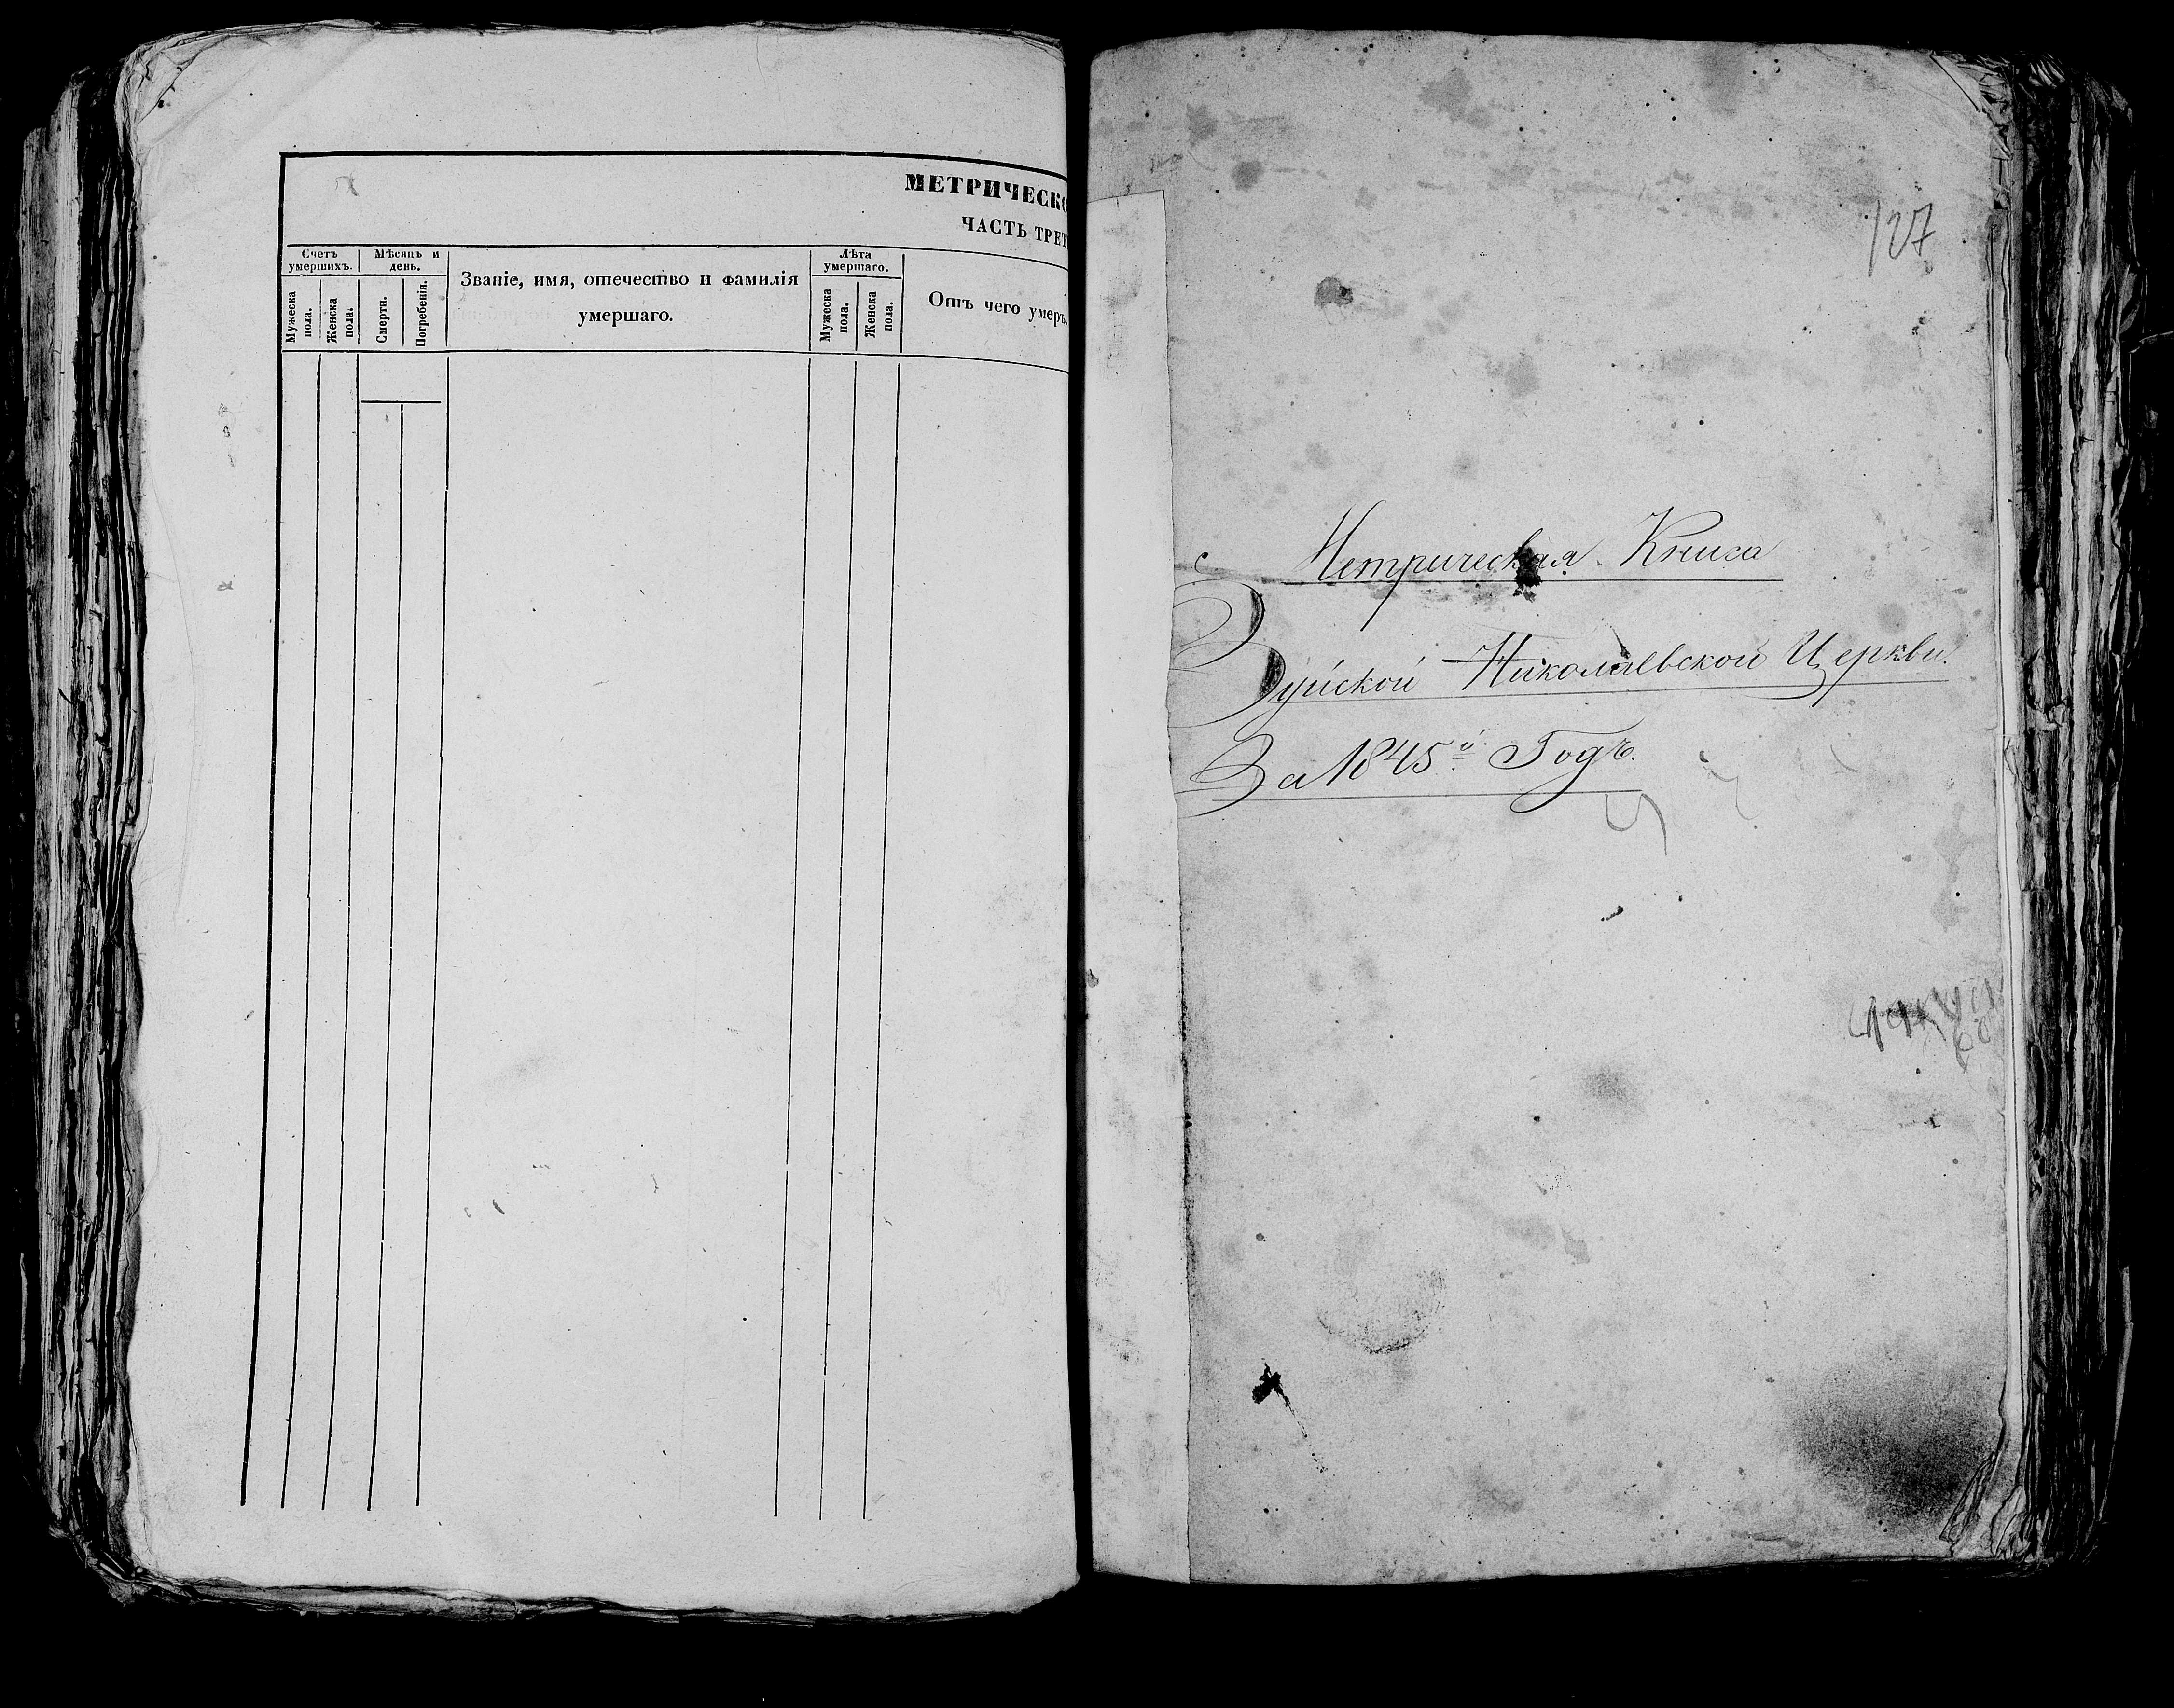 МЕТРИЧЕСКО
ЧАСТЬ ТРЕТ
Счетъ умершихъ.
Мѣсяцъ и день.
Званіе, имя, отечество и фамилія
умершаго.
Лѣта умершаго.
Отъ чего умеръ.
Мужеска пола.
Женска пола.
Смерти.
Погребенія.
Мужеска пола.
Женска пола.
127
Метрическая Книга
Зуйской Николаевской Церкви.
За 1845й Годъ.